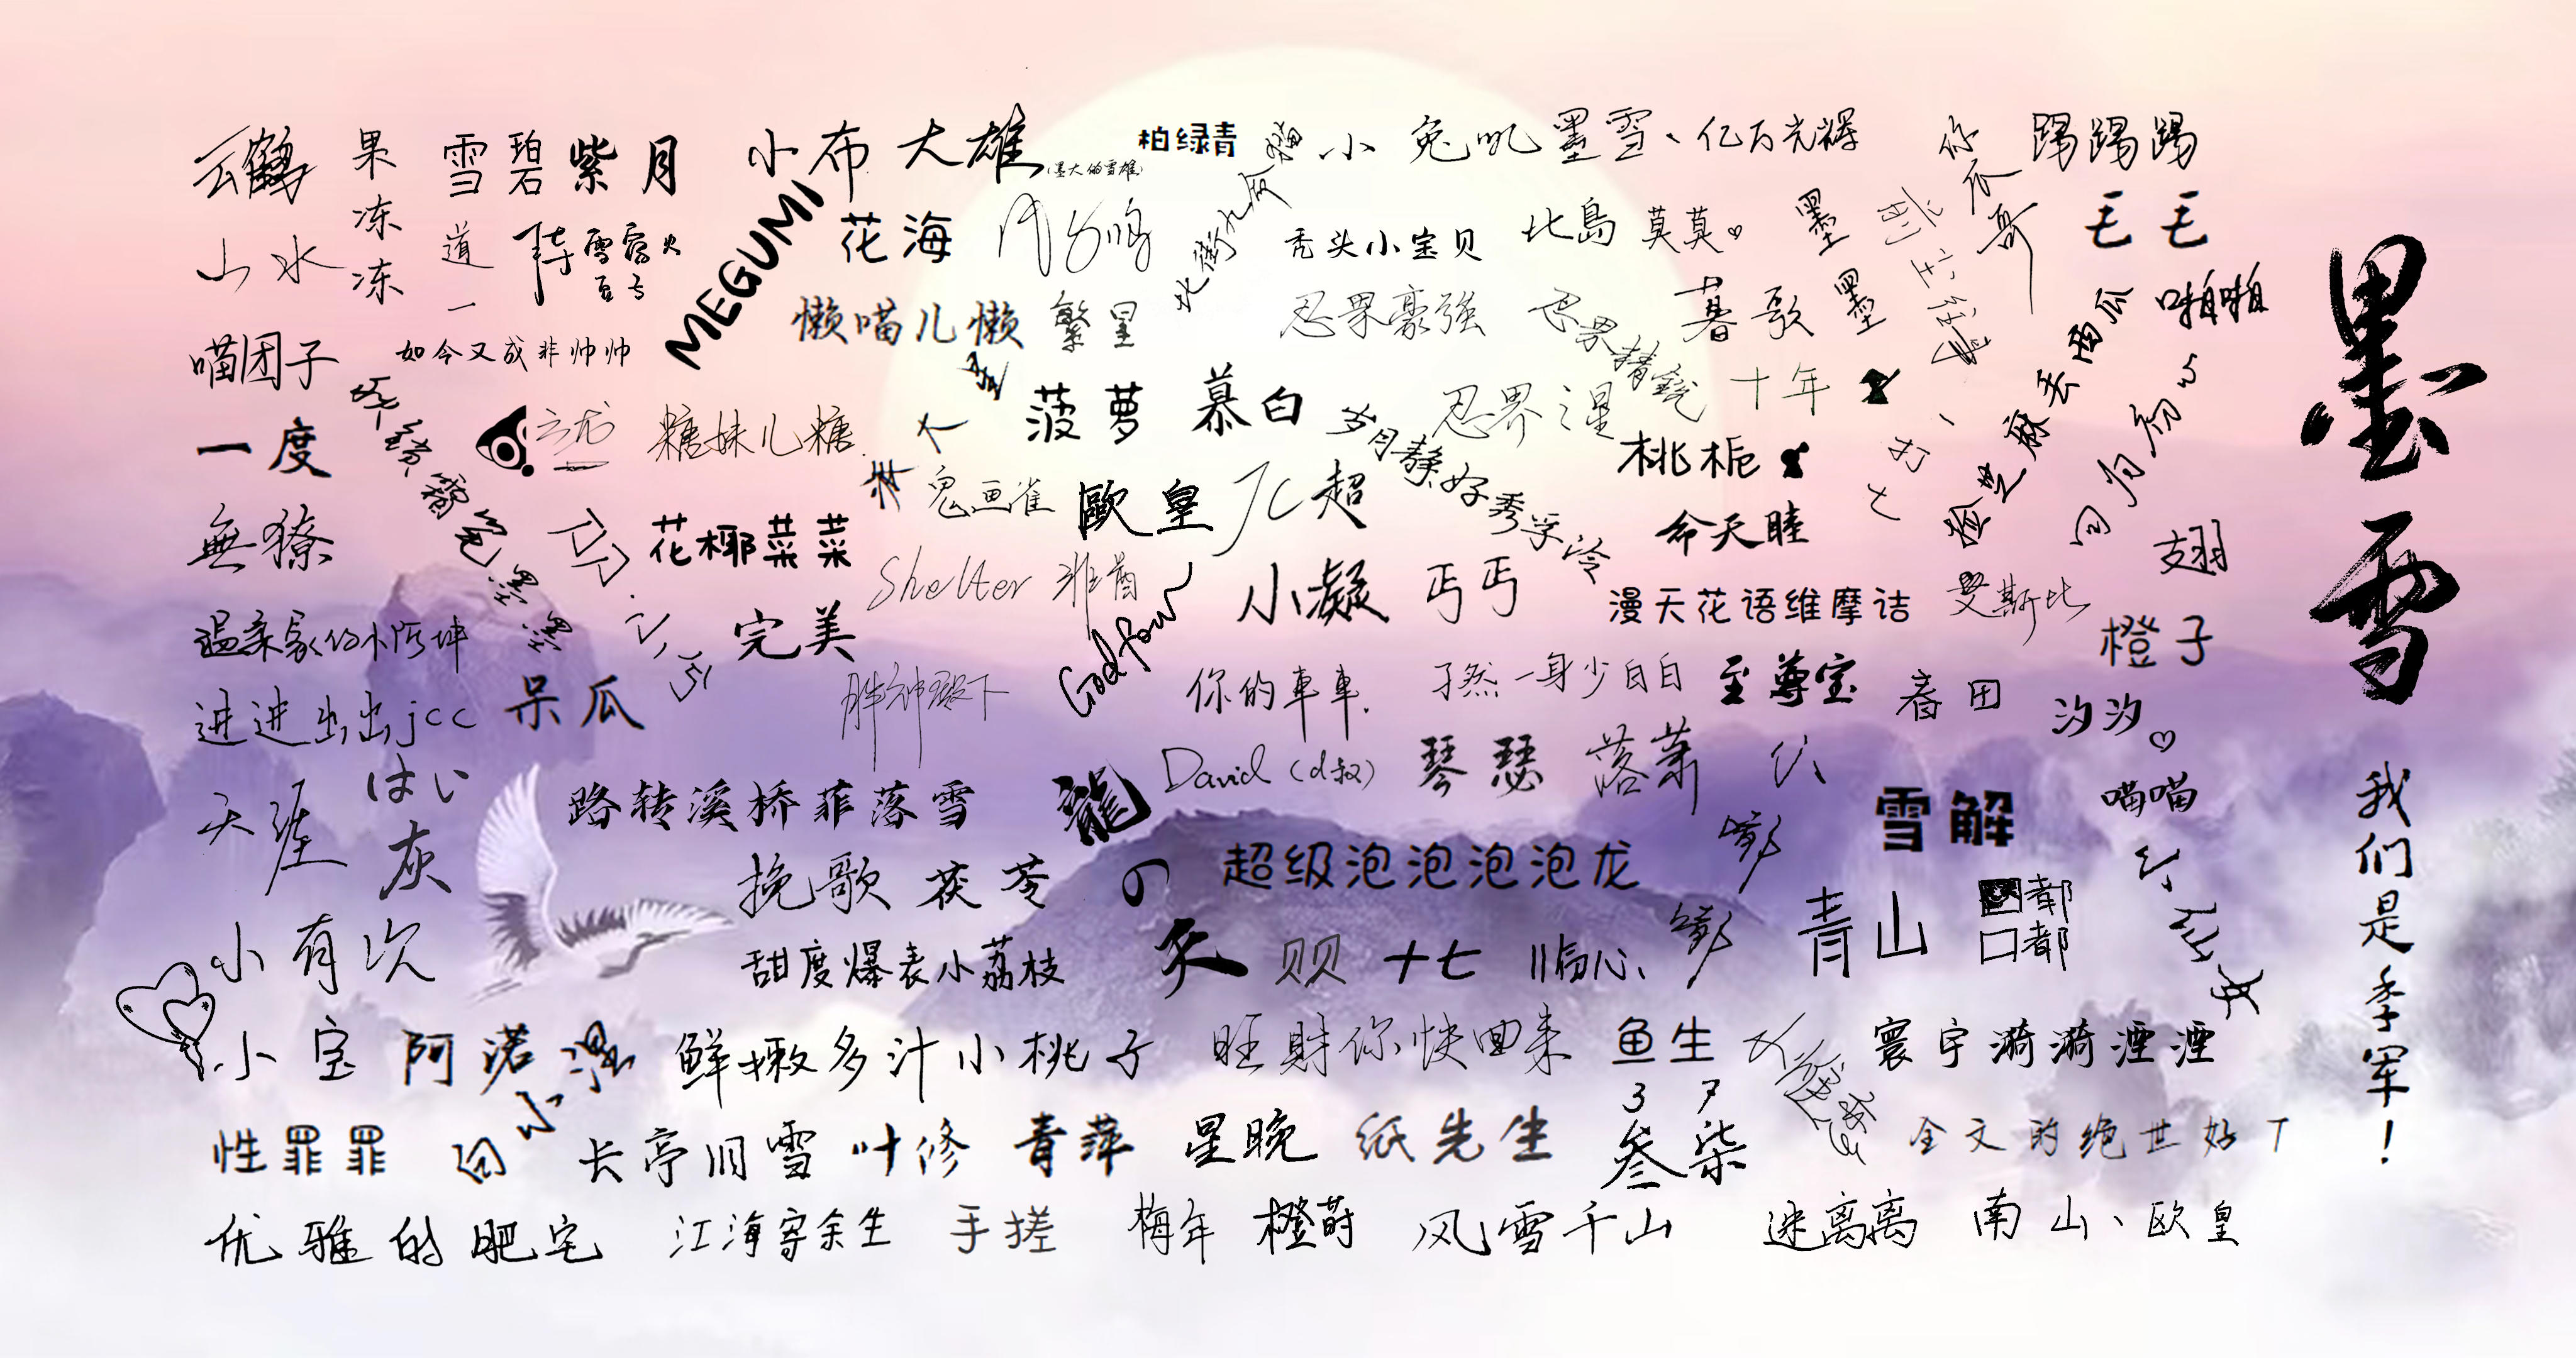 墨雪
我们是季军!
云鹤
果冻冻
雪碧
紫月
小布大雄
(墨大的雪雄)
柏绿青
小兔叽
墨雪、亿万光辉
你爪哥
踢踢踢
山水
道一
MEGUMI
花海
秃头小宝贝
北島
莫莫
墨墨
毛毛
喵团子
如今又成非帅帅
懒喵儿懒
繁星
忍界豪强
忍界精銳
暮歌
捡芝麻丢西瓜
啪啪
一度
云龙
糖妹儿糖
菠萝
慕白
岁月静好秀孚泠
忍界之星
十年
桃栀
無獠
花椰菜菜
鬼画雀
歐皇
几超
命天睦
翅
温柔家的小阿坤
完美
Shelter
非酋
Godfour
小凝
丐丐
漫天花语维摩诘
曼斯比
橙子
进进出出jcc
呆瓜
胖神殿下
你的車車.
孑然一身少白白
至尊宝
春田
汐汐
天涯
はい
灰
路转溪桥菲落雪
龍の天
David (d叔)
琴瑟
落萧
雪解
喵喵
挽歌
茯苓
超级泡泡泡泡龙
青山
小有次
甜度爆表小荔枝
贝贝
十七
临心
小宝
阿诺
鲜嫩多汁小桃子
旺财你快回来
鱼生
寰宇漪漪湮湮
性罪罪
长亭旧雪
叶修
青萍
星晚
纸先生
37
叁柒
全文的绝世好T
优雅的肥宅
江海寄余生
手搓
梅年
橙莳
风雪千山
迷离离
南山、欧皇